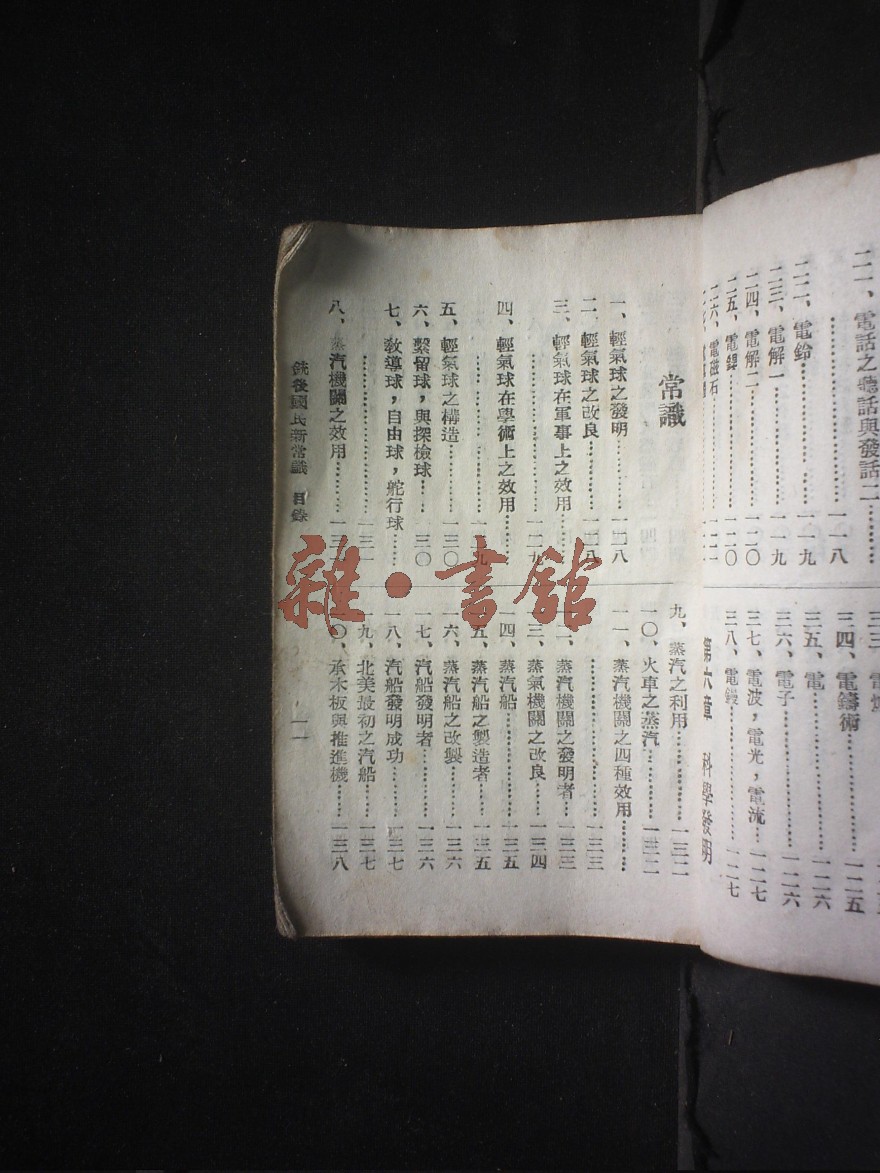 二一、電話之聽話與發話二…………
…………………一一八
二二、電鈴………一一九
二三、電解一………一一九
二四、電解二………一二〇
二五、電鍍………一二〇
二六、電磁石………一二一
三四、電鑄術………一二五
三五、電………一二六
三六、電子………一二六
三七、電波，電光，電流…一二七
三八、電鍍………一二七
第六章 科學發明
常識
一、輕氣球之發明………一二八
二、輕氣球之改良………一二八
三、輕氣球在軍事上之效用………
…………………一二九
四、輕氣球在學術上之效用………
…………………一二九
五、輕氣球之構造………一三〇
六、繫留球，與探檢球……一三〇
七、敎導球，自由球，舵行球……
…………………一三一
八、蒸汽機關之效用………一三一
九、蒸汽之利用………一三二
一〇、火車之蒸汽………一三二
一一、蒸汽機關之四種效用………
…………………一三三
一二、蒸汽機關之發明者…一三三
一三、蒸氣機關之改良……一三四
一四、蒸汽船………一三五
一五、蒸汽船之製造者……一三五
一六、蒸汽船之改製………一三六
一七、汽船發明者………一三六
一八、汽船發明成功………一三七
一九、北美最初之汽船……一三七
二〇、承木板與推進機……一三八
銃後國民新常識 目錄
一一
雜·書館